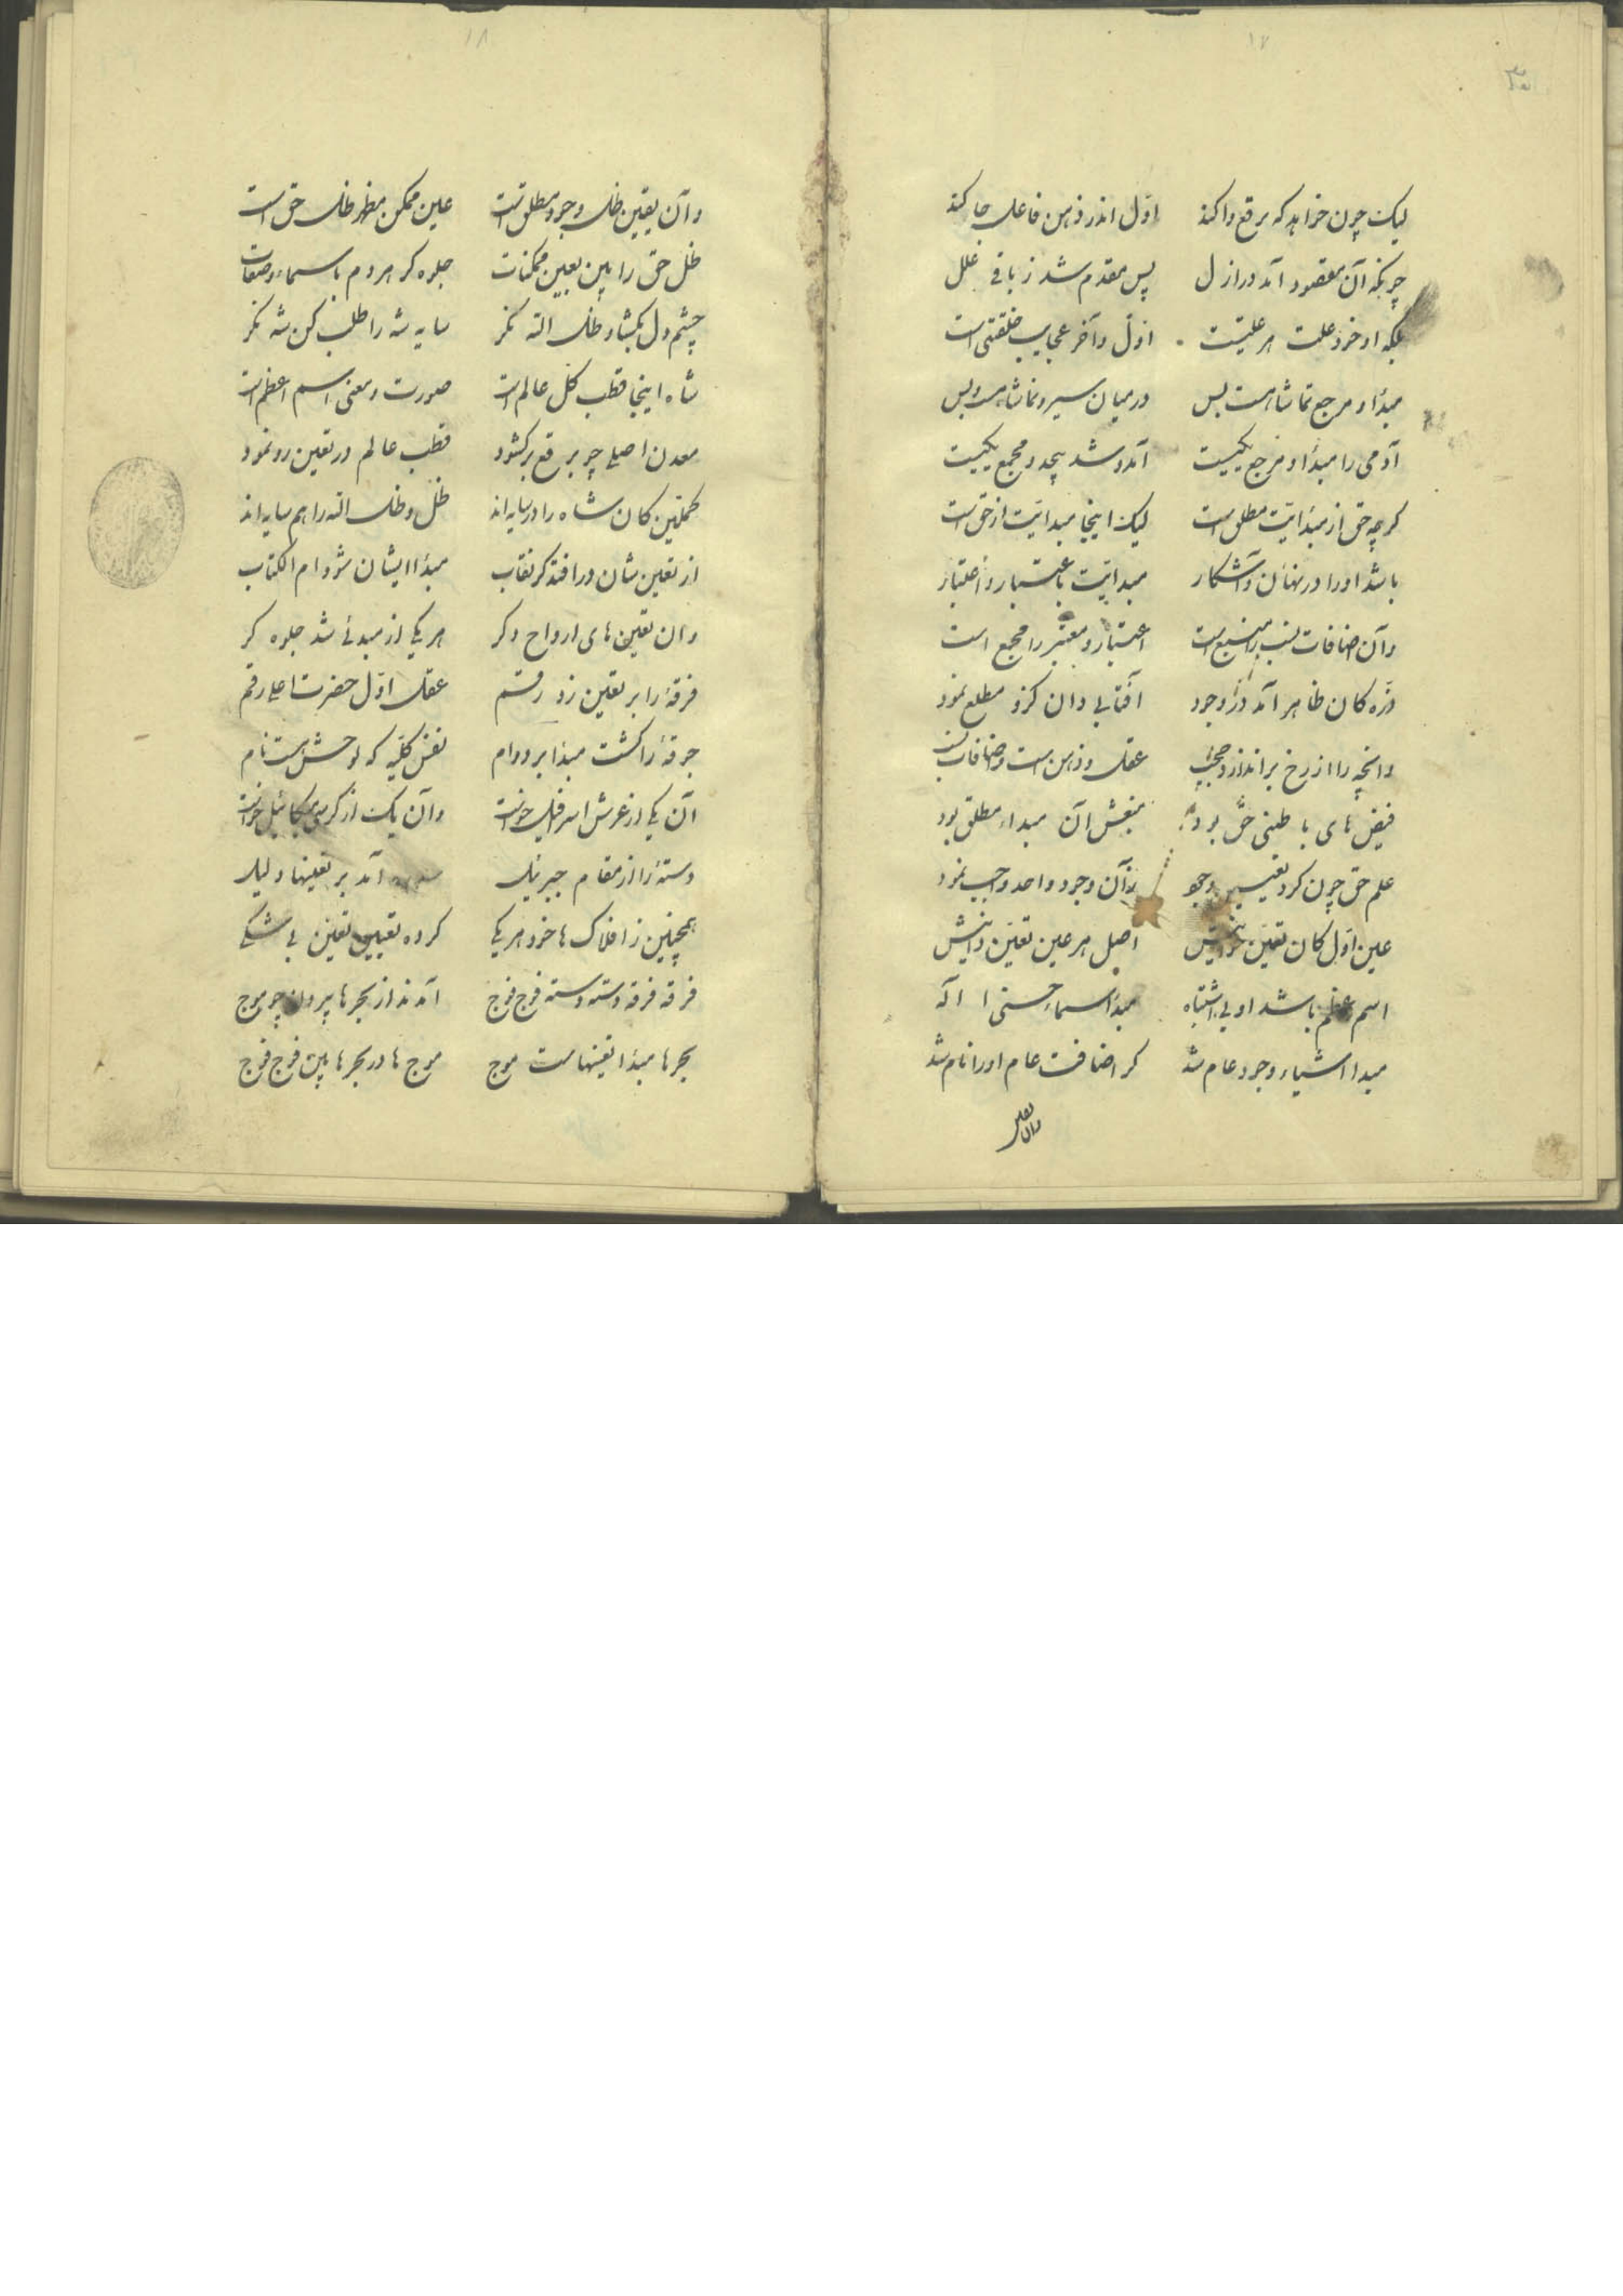 ۱۷
لیک چون خواهد که برقع وا کند اوّل اندر ذهن فاعل جا کند
چونکه آن مقصود آمد در ازل پس مقدم شد ز باقی علل
بلکه او خود علت هر علیتست اوّل و آخر عجایب خلقتی است
مبدأ و مرجع تماشاهست بس در میان سیر و تماشاهست و بس
آدمی را مبدأ و مرجع یکیست آمد و شد بیحد و مجمع یکیست
کرچه حق از مبدایت مطلق است لیک اینجا مبدایت از حق است
باشد او را در نهان و آشکار مبدایت باعتبار و اعتبار
وآن اضافات نسب را منبع است اعتبار و معتبر را مجمع است
ذرّه کان ظاهر آمد در وجود آفتابی دان کزو مطلع نمود
وانچه را از رخ براندازد حجب عقل و ذهن است و اضافات نسب
فیض های باطنی حق بود منبعش آن مبداء مطلق بود
علم حق چون کرد تقسیم وجود زآن وجود واحد واجب نمود
عین اوّل کان تعیّن اصل هر عین تعیّن دانیش
اسم اعظم باشد او بی اشتباه مبدأ اسماء حسنی اله
مبدا اشیاء وجود عام شد کز اضافت عام او را نام شد
وان تعین
۱۸
وآن تعین ظل وجود مطلق است عین ممکن مظهر ظل حق است
ظل حق را بین بعین ممکنات جلوه کر هر دم باسماء و صفات
چشم دل بکشا و ظل الله نکر سایه شه را طلب کن شه نکر
شاه اینجا قطب کل عالم است صورت و معنی اسم اعظم است
معدن اصلی چو برقع برکشود قطب عالم در تعین رو نمود
کملین کان شاه را در سایه اند ظل و ظل الله را هم سایه اند
از تعین شان در افتد کر نقاب مبدأ ایشان شود ام الکتاب
وان تعین های ارواح دکر هر یکی از مبدئی شد جلوه کر
فرقهٔ را بر تعین زد رقم عقل اوّل حضرت اعلی رقم
جوقهٔ را کشت مبدا بر دوام نفس کلیه که لوحش است نام
آن یکی از عرش اسرافیل خواست وآن یک از کرسی میکائیل خواست
دستهٔ را از مقام جبرئیل آمد بر تعینها دلیل
همچنین ز افلاک ها خود هر یکی کرده تعیین تعین بی شکی
فرقه فرقه دسته دسته فوج فوج آمدند از بحرها بیرون چو موج
بحرها مبدا تعینهاست موج موج ها در بحرها بین فوج فوج